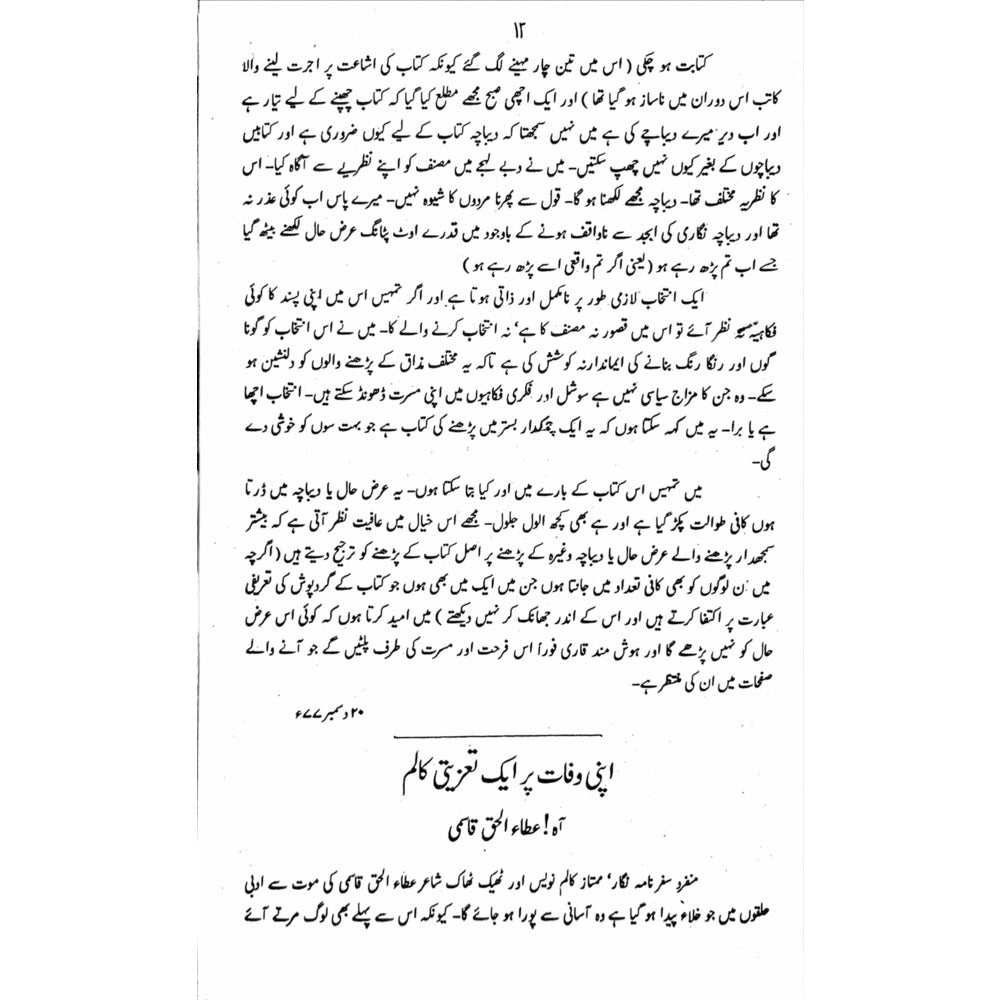 ۱۲
کتابت ہو چکی ( اس میں تین چار مہینے لگ گئے کیونکہ کتاب کی اشاعت پر اجرت لینے والا
کاتب اس دوران میں ناساز ہو گیا تھا ) اور ایک اچھی صبح مجھے مطلع کیا گیا کہ کتاب چھپنے کے لیے تیار ہے
اور اب دیر میرے دیباچے کی ہے میں نہیں سمجھتا کہ دیباچہ کتاب کے لیے کیوں ضروری ہے اور کتابیں
دیباچوں کے بغیر کیوں نہیں چھپ سکتیں۔ میں نے دبے لہجے میں مصنف کو اپنے نظریے سے آگاہ کیا۔ اس
کا نظریہ مختلف تھا۔ دیباچہ مجھے لکھنا ہو گا۔ قول سے پھرنا مردوں کا شیوہ نہیں۔ میرے پاس اب کوئی عذر نہ
تھا اور دیباچہ نگاری کی ابجد سے ناواقف ہونے کے باوجود میں قدرے اوٹ پٹانگ عرض حال لکھنے بیٹھ گیا
جسے اب تم پڑھ رہے ہو (یعنی اگر تم واقعی اسے پڑھ رہے ہو )
ایک انتخاب لازمی طور پر نامکمل اور ذاتی ہوتا ہے اور اگر تمہیں اس میں اپنی پسند کا کوئی
فکاہیہ نظر آئے تو اس میں قصور نہ مصنف کا ہے‘ نہ انتخاب کرنے والے کا۔ میں نے اس انتخاب کو گونا
گوں اور رنگا رنگ بنانے کی ایماندارنہ کوشش کی ہے تاکہ یہ مختلف مذاق کے پڑھنے والوں کو دلنشین ہو
سکے۔ وہ جن کا مزاج سیاسی نہیں ہے سوشل اور فکری فکاہیوں میں اپنی مسرت ڈھونڈ سکتے ہیں۔ انتخاب اچھا
ہے یا برا۔ یہ میں کہہ سکتا ہوں کہ یہ ایک چمکدار بستر میں پڑھنے کی کتاب ہے جو بہت سوں کو خوشی دے
گی۔
میں تمہیں اس کتاب کے بارے میں اور کیا بتا سکتا ہوں۔ یہ عرض حال یا دیباچہ میں ڈرتا
ہوں کافی طوالت پکڑ گیا ہے اور ہے بھی کچھ الول جلول۔ مجھے اس خیال میں عافیت نظر آتی ہے کہ بیشتر
سمجھدار پڑھنے والے عرض حال یا دیباچہ وغیرہ کے پڑھنے پر اصل کتاب کے پڑھنے کو ترجیح دیتے ہیں (اگرچہ
میں ن لوگوں کو بھی کافی تعداد میں جانتا ہوں جن میں ایک میں بھی ہوں جو کتاب کے گردپوش کی تعریفی
عبارت پر اکتفا کرتے ہیں اور اس کے اندر جھانک کر نہیں دیکھتے ) میں امید کرتا ہوں کہ کوئی اس عرض
حال کو نہیں پڑھے گا اور ہوش مند قاری فوراً اس فرحت اور مسرت کی طرف پلٹیں گے جو آنے والے
صفحات میں ان کی منتظر ہے۔
۲۰ دسمبر ۷۷ء
اپنی وفات پر ایک تعزیتی کالم
آہ! عطاء الحق قاسمی
منفرد سفرنامہ نگار‘ ممتاز کالم نویس اور ٹھیک ٹھاک شاعر عطاء الحق قاسمی کی موت سے ادبی
حلقوں میں جو خلاء پیدا ہو گیا ہے وہ آسانی سے پورا ہو جائے گا۔ کیونکہ اس سے پہلے بھی لوگ مرتے آئے